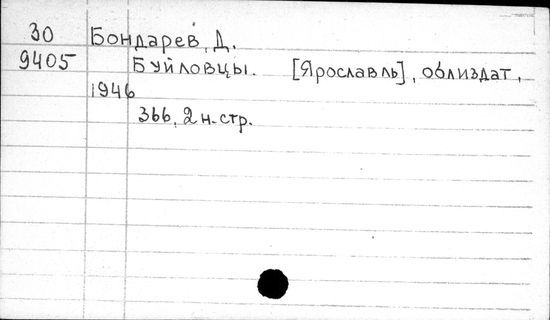 30 Бондарев, Д.
9405 Буйловцы. [Ярославль], облиздат,
1946
366, 2 н. стр.